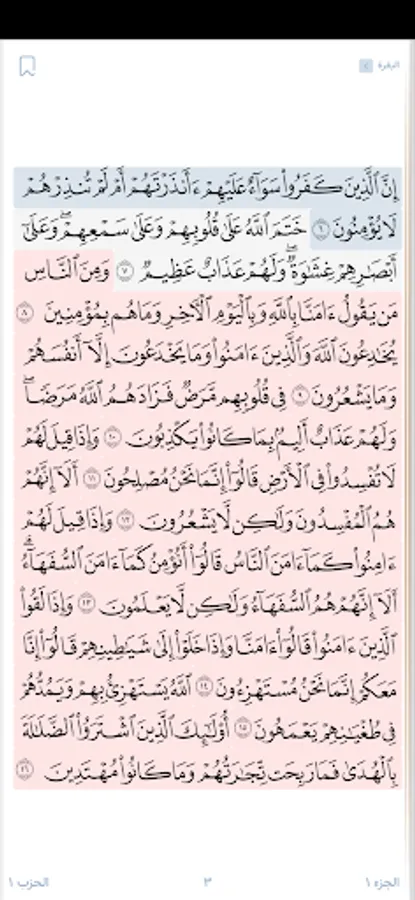 البقرة
إِنَّ ٱلَّذِينَ كَفَرُوا۟ سَوَآءٌ عَلَيْهِمْ ءَأَنذَرْتَهُمْ أَمْ لَمْ تُنذِرْهُمْ
لَا يُؤْمِنُونَ ٦ خَتَمَ ٱللَّهُ عَلَىٰ قُلُوبِهِمْ وَعَلَىٰ سَمْعِهِمْ ۖ وَعَلَىٰٓ
أَبْصَٰرِهِمْ غِشَٰوَةٌ ۖ وَلَهُمْ عَذَابٌ عَظِيمٌ ٧ وَمِنَ ٱلنَّاسِ
مَن يَقُولُ ءَامَنَّا بِٱللَّهِ وَبِٱلْيَوْمِ ٱلْءَاخِرِ وَمَا هُم بِمُؤْمِنِينَ ٨
يُخَٰدِعُونَ ٱللَّهَ وَٱلَّذِينَ ءَامَنُوا۟ وَمَا يَخْدَعُونَ إِلَّآ أَنفُسَهُمْ
وَمَا يَشْعُرُونَ ٩ فِى قُلُوبِهِم مَّرَضٌ فَزَادَهُمُ ٱللَّهُ مَرَضًا ۖ
وَلَهُمْ عَذَابٌ أَلِيمٌۢ بِمَا كَانُوا۟ يَكْذِبُونَ ١٠ وَإِذَا قِيلَ لَهُمْ
لَا تُفْسِدُوا۟ فِى ٱلْأَرْضِ قَالُوٓا۟ إِنَّمَا نَحْنُ مُصْلِحُونَ ١١ أَلَآ إِنَّهُمْ
هُمُ ٱلْمُفْسِدُونَ وَلَٰكِن لَّا يَشْعُرُونَ ١٢ وَإِذَا قِيلَ لَهُمْ
ءَامِنُوا۟ كَمَآ ءَامَنَ ٱلنَّاسُ قَالُوٓا۟ أَنُؤْمِنُ كَمَآ ءَامَنَ ٱلسُّفَهَآءُ ۗ
أَلَآ إِنَّهُمْ هُمُ ٱلسُّفَهَآءُ وَلَٰكِن لَّا يَعْلَمُونَ ١٣ وَإِذَا لَقُوا۟
ٱلَّذِينَ ءَامَنُوا۟ قَالُوٓا۟ ءَامَنَّا وَإِذَا خَلَوْا۟ إِلَىٰ شَيَٰطِينِهِمْ قَالُوٓا۟ إِنَّا
مَعَكُمْ إِنَّمَا نَحْنُ مُسْتَهْزِءُونَ ١٤ ٱللَّهُ يَسْتَهْزِئُ بِهِمْ وَيَمُدُّهُمْ
فِى طُغْيَٰنِهِمْ يَعْمَهُونَ ١٥ أُو۟لَٰٓئِكَ ٱلَّذِينَ ٱشْتَرَوُا۟ ٱلضَّلَٰلَةَ
بِٱلْهُدَىٰ فَمَا رَبِحَت تِّجَٰرَتُهُمْ وَمَا كَانُوا۟ مُهْتَدِينَ ١٦
الجزء ١ ٣ الحزب ١